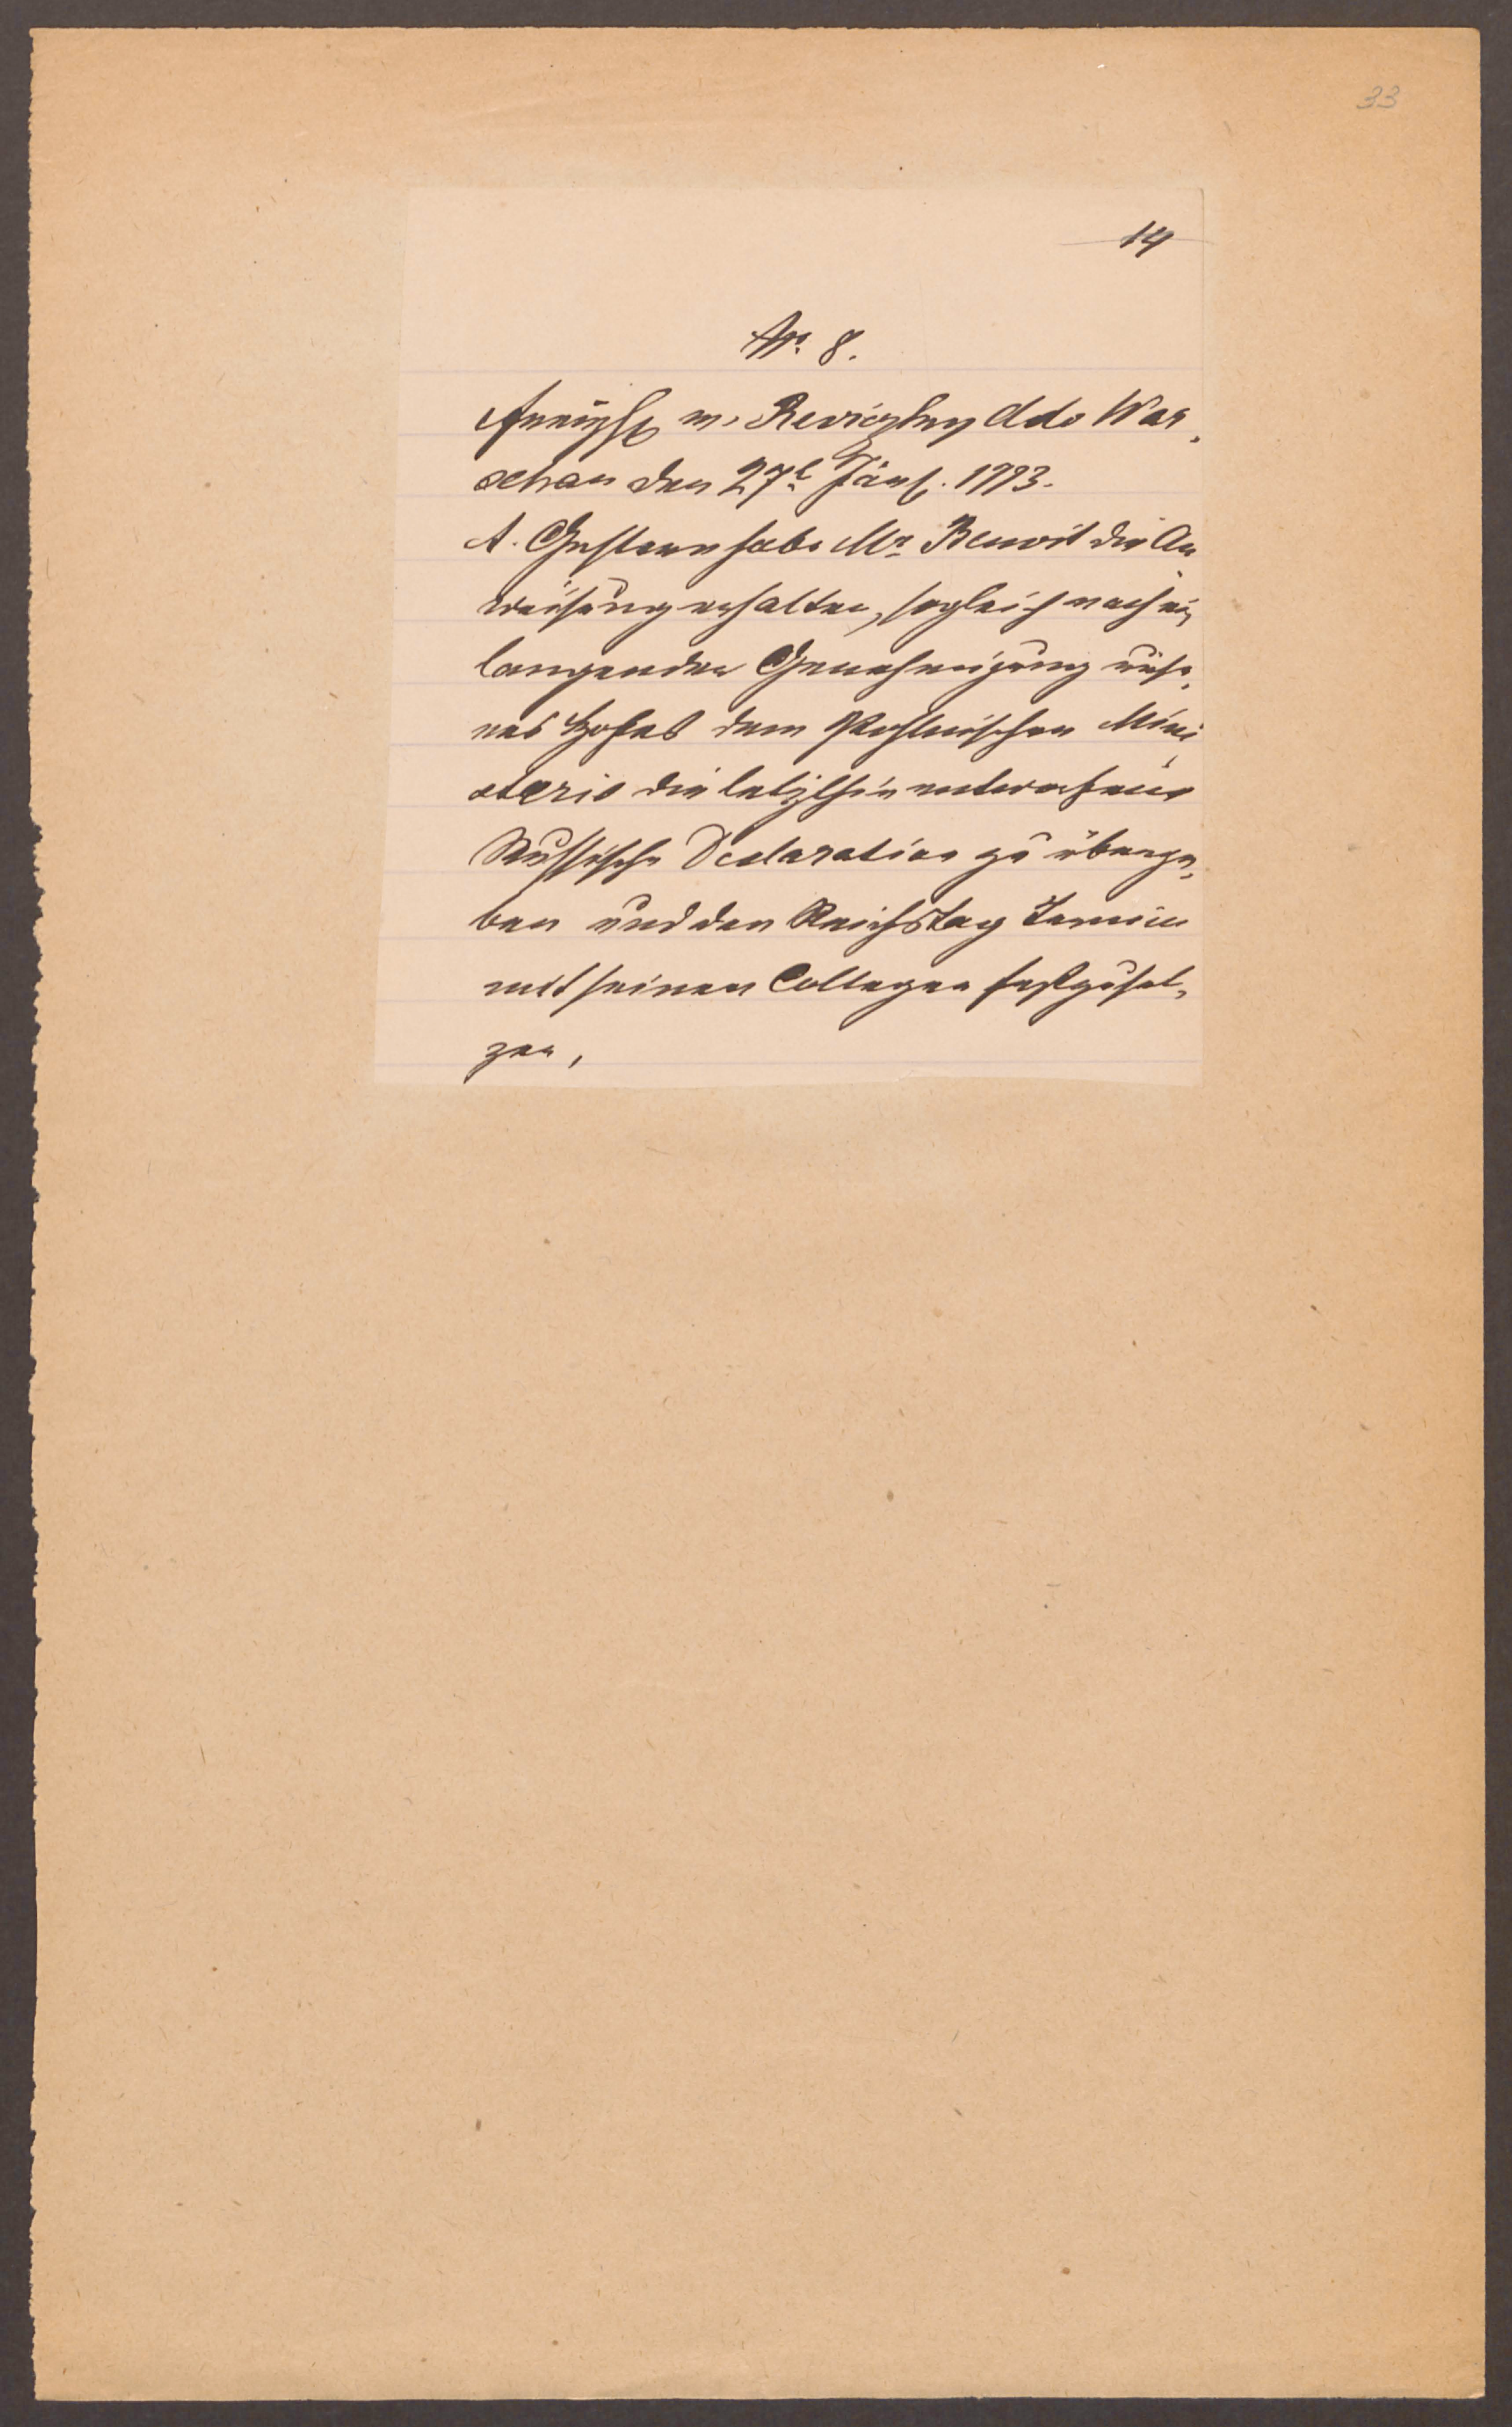 33
14
Nr. 8.
Reviczky ddo War„
schau den 27t Jänner. 1773.
A. Gestern habe Mr. Benoit die An„
weisung erhalten, sogleich nach ein„
langender Genehmigung unse„
res Hofes dem Pohlnischen Mini„
sterio die letzthin entworfene
Russische Declaration zu überge„
ben und den Reichstag Termin
mit seinen Collegen festzuset„
zen,